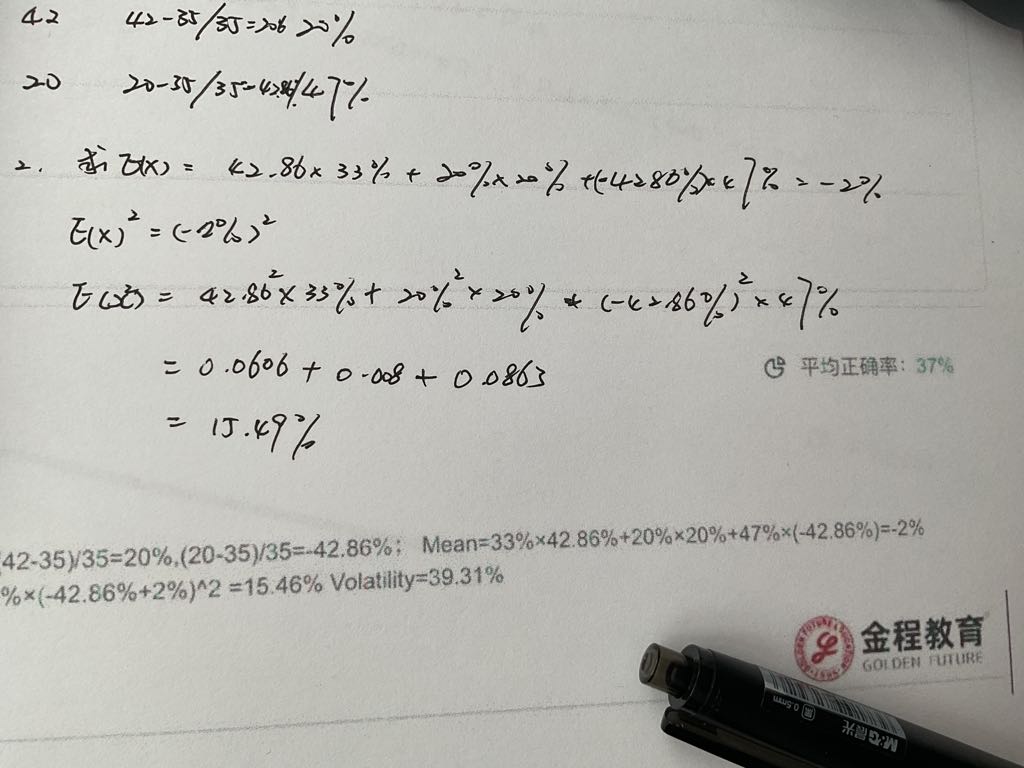 42 42-35/35=206 20%
20 20-35/35=-42.86/47%
2. 求 E(X) = 42.86×33% + 20%×20% +(-4286%)×47% = -2%
E(X)² = (-2%)²
E(X²) = 42.86²×33% + 20%²×20% + (-42.86%)²×47%
= 0.0606 + 0.008 + 0.0863
平均正确率：37%
= 15.49%
(42-35)/35=20%,(20-35)/35=-42.86%； Mean=33%×42.86%+20%×20%+47%×(-42.86%)=-2%
%×(-42.86%+2%)^2 =15.46% Volatility=39.31%
金程教育
GOLDEN FUTURE
M&G 晨光
0.5mm